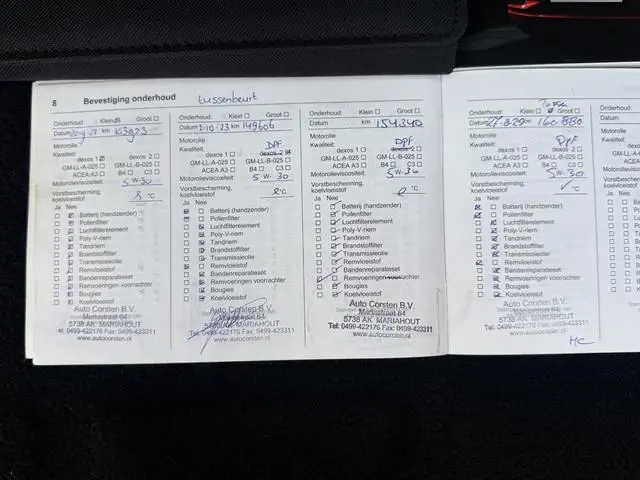 8 Bevestiging onderhoud tussenbeurt
Onderhoud: Klein Groot
Datum km
Motorolie
Kwaliteit:
dexos 1 dexos 2
GM-LL-A-025 GM-LL-B-025
ACEA A3 B4 C3
Motorolieviscositeit: 5 W-30
Vorstbescherming, koelvloeistof °C
Ja Nee
Batterij (handzender)
Pollenfilter
Luchtfilterelement
Poly-V-riem
Tandriem
Brandstoffilter
Transmissieolie
Remvloeistof
Bandenreparatieset
Remvoeringen voor/achter
Bougies
Koelvloeistof
Auto Corsten B.V.
Mariastraat 64
5738 AK MARIAHOUT
Tel. 0499-422176 Fax: 0499-423311
www.autocorsten.nl
Onderhoud: Klein Groot
Datum 2-10-23 km 149606
Motorolie DPF
Kwaliteit:
dexos 1 dexos 2
GM-LL-A-025 GM-LL-B-025
ACEA A3 B4 C3
Motorolieviscositeit: 5 W- 30
Vorstbescherming, koelvloeistof °C
Ja Nee
Batterij (handzender)
Pollenfilter
Luchtfilterelement
Poly-V-riem
Tandriem
Brandstoffilter
Transmissieolie
Remvloeistof
Bandenreparatieset
Remvoeringen voor/achter
Bougies
Koelvloeistof
Auto Corsten B.V.
Mariastraat 64
5738 AK MARIAHOUT
Tel: 0499-422176 Fax: 0499-423311
www.autocorsten.nl
Onderhoud: Klein Groot
Datum km 154340
Motorolie DPF
Kwaliteit:
dexos 1 dexos 2
GM-LL-A-025 GM-LL-B-025
ACEA A3 B4 C3
Motorolieviscositeit: 5 W-30
Vorstbescherming, koelvloeistof °C
Ja Nee
Batterij (handzender)
Pollenfilter
Luchtfilterelement
Poly-V-riem
Tandriem
Brandstoffilter
Transmissieolie
Remvloeistof
Bandenreparatieset
Remvoeringen voor/achter
Bougies
Koelvloeistof
Auto Corsten B.V.
Mariastraat 64
5738 AK MARIAHOUT
Tel: 0499-422176 Fax: 0499-423311
www.autocorsten.nl
Onderhoud: Klein Groot
Datum km 160880
Motorolie DPF
Kwaliteit:
dexos 1 dexos 2
GM-LL-A-025 GM-LL-B-025
ACEA A3 B4 C3
Motorolieviscositeit: 5 W- 30
Vorstbescherming, koelvloeistof °C
Ja Nee
Batterij (handzender)
Pollenfilter
Luchtfilterelement
Poly-V-riem
Tandriem
Brandstoffilter
Transmissieolie
Remvloeistof
Bandenreparatieset
Remvoeringen voor/achter
Bougies
Koelvloeistof
Auto Corsten B.V.
Mariastraat 64
5738 AK MARIAHOUT
Tel: 0499-422176 Fax: 0499-423311
www.autocorsten.nl
HC